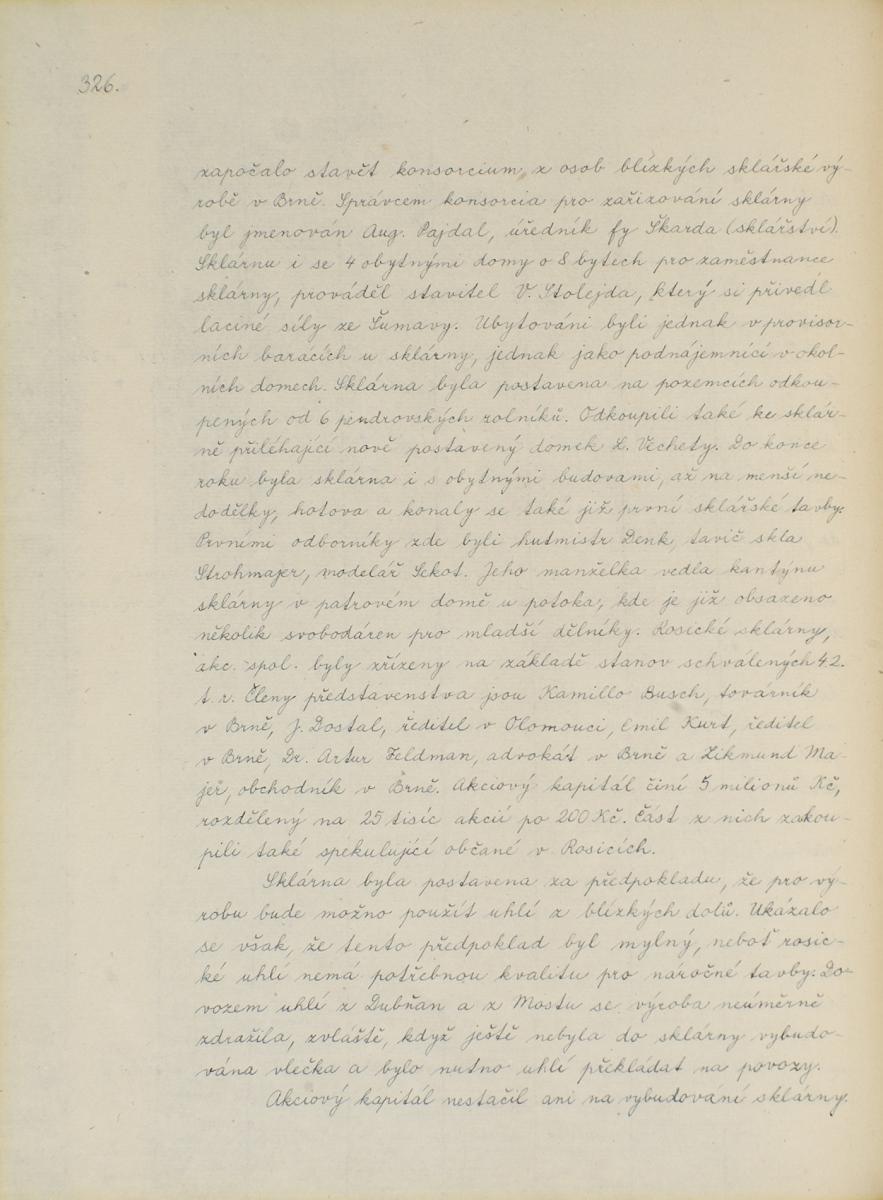 326.
započalo stavět konsorcium z osob blízkých sklářské vý-
robě v Brně. Správcem konsorcia pro zařizování sklárny
byl jmenován Aug. Pajdal, úředník fy Škarda (sklářství).
Sklárnu i se 4 obytnými domy o 8 bytech pro zaměstnance
sklárny, prováděl stavitel V. Stolejda, který si přivedl
laciné síly ze Šumavy. Ubytováni byli jednak v provisor-
ních barácích u sklárny, jednak jako podnájemníci v okol-
ních domech. Sklárna byla postavena na pozemcích odkou-
pených od 6 pendrovských rolníků. Odkoupili také ke sklár-
ně přiléhající nově postavený domek L. Vechety. Do konce
roku byla sklárna i s obytnými budovami, až na menší ne-
dodělky, hotova a konaly se také již první sklářské tavby.
Prvními odborníky zde byli hutmistr Denk, tavič skla
Strohmajer, modelář Sekot. Jeho manželka vedla kantýnu
sklárny v patrovém domě u potoka, kde je již obsazeno
několik svobodáren pro mladší dělníky. Rosické sklárny,
akc. spol. byly zřízeny na základě stanov schválených 4.2.
t. r. Členy představenstva jsou Kamillo Busch, továrník
v Brně, J. Dostal, ředitel v Olomouci, Emil Kurt, ředitel
v Brně, Dr. Artur Feldman, advokát v Brně a Zikmund Ma-
jer, obchodník v Brně. Akciový kapitál činí 5 milionů Kč,
rozdělený na 25 tisíc akcií po 200 Kč. Část z nich zakou-
pili také spekulující občané v Rosicích.
Sklárna byla postavena za předpokladu, že pro vý-
robu bude možno použít uhlí z blízkých dolů. Ukázalo
se však, že tento předpoklad byl mylný, neboť rosic-
ké uhlí nemá potřebnou kvalitu pro náročné tavby. Do-
vozem uhlí z Dubňan a z Mostu se výroba neúměrně
zdražila, zvláště, když ještě nebyla do sklárny vybudo-
vána vlečka a bylo nutno uhlí překládat na povozy.
Akciový kapitál nestačil ani na vybudování sklárny.